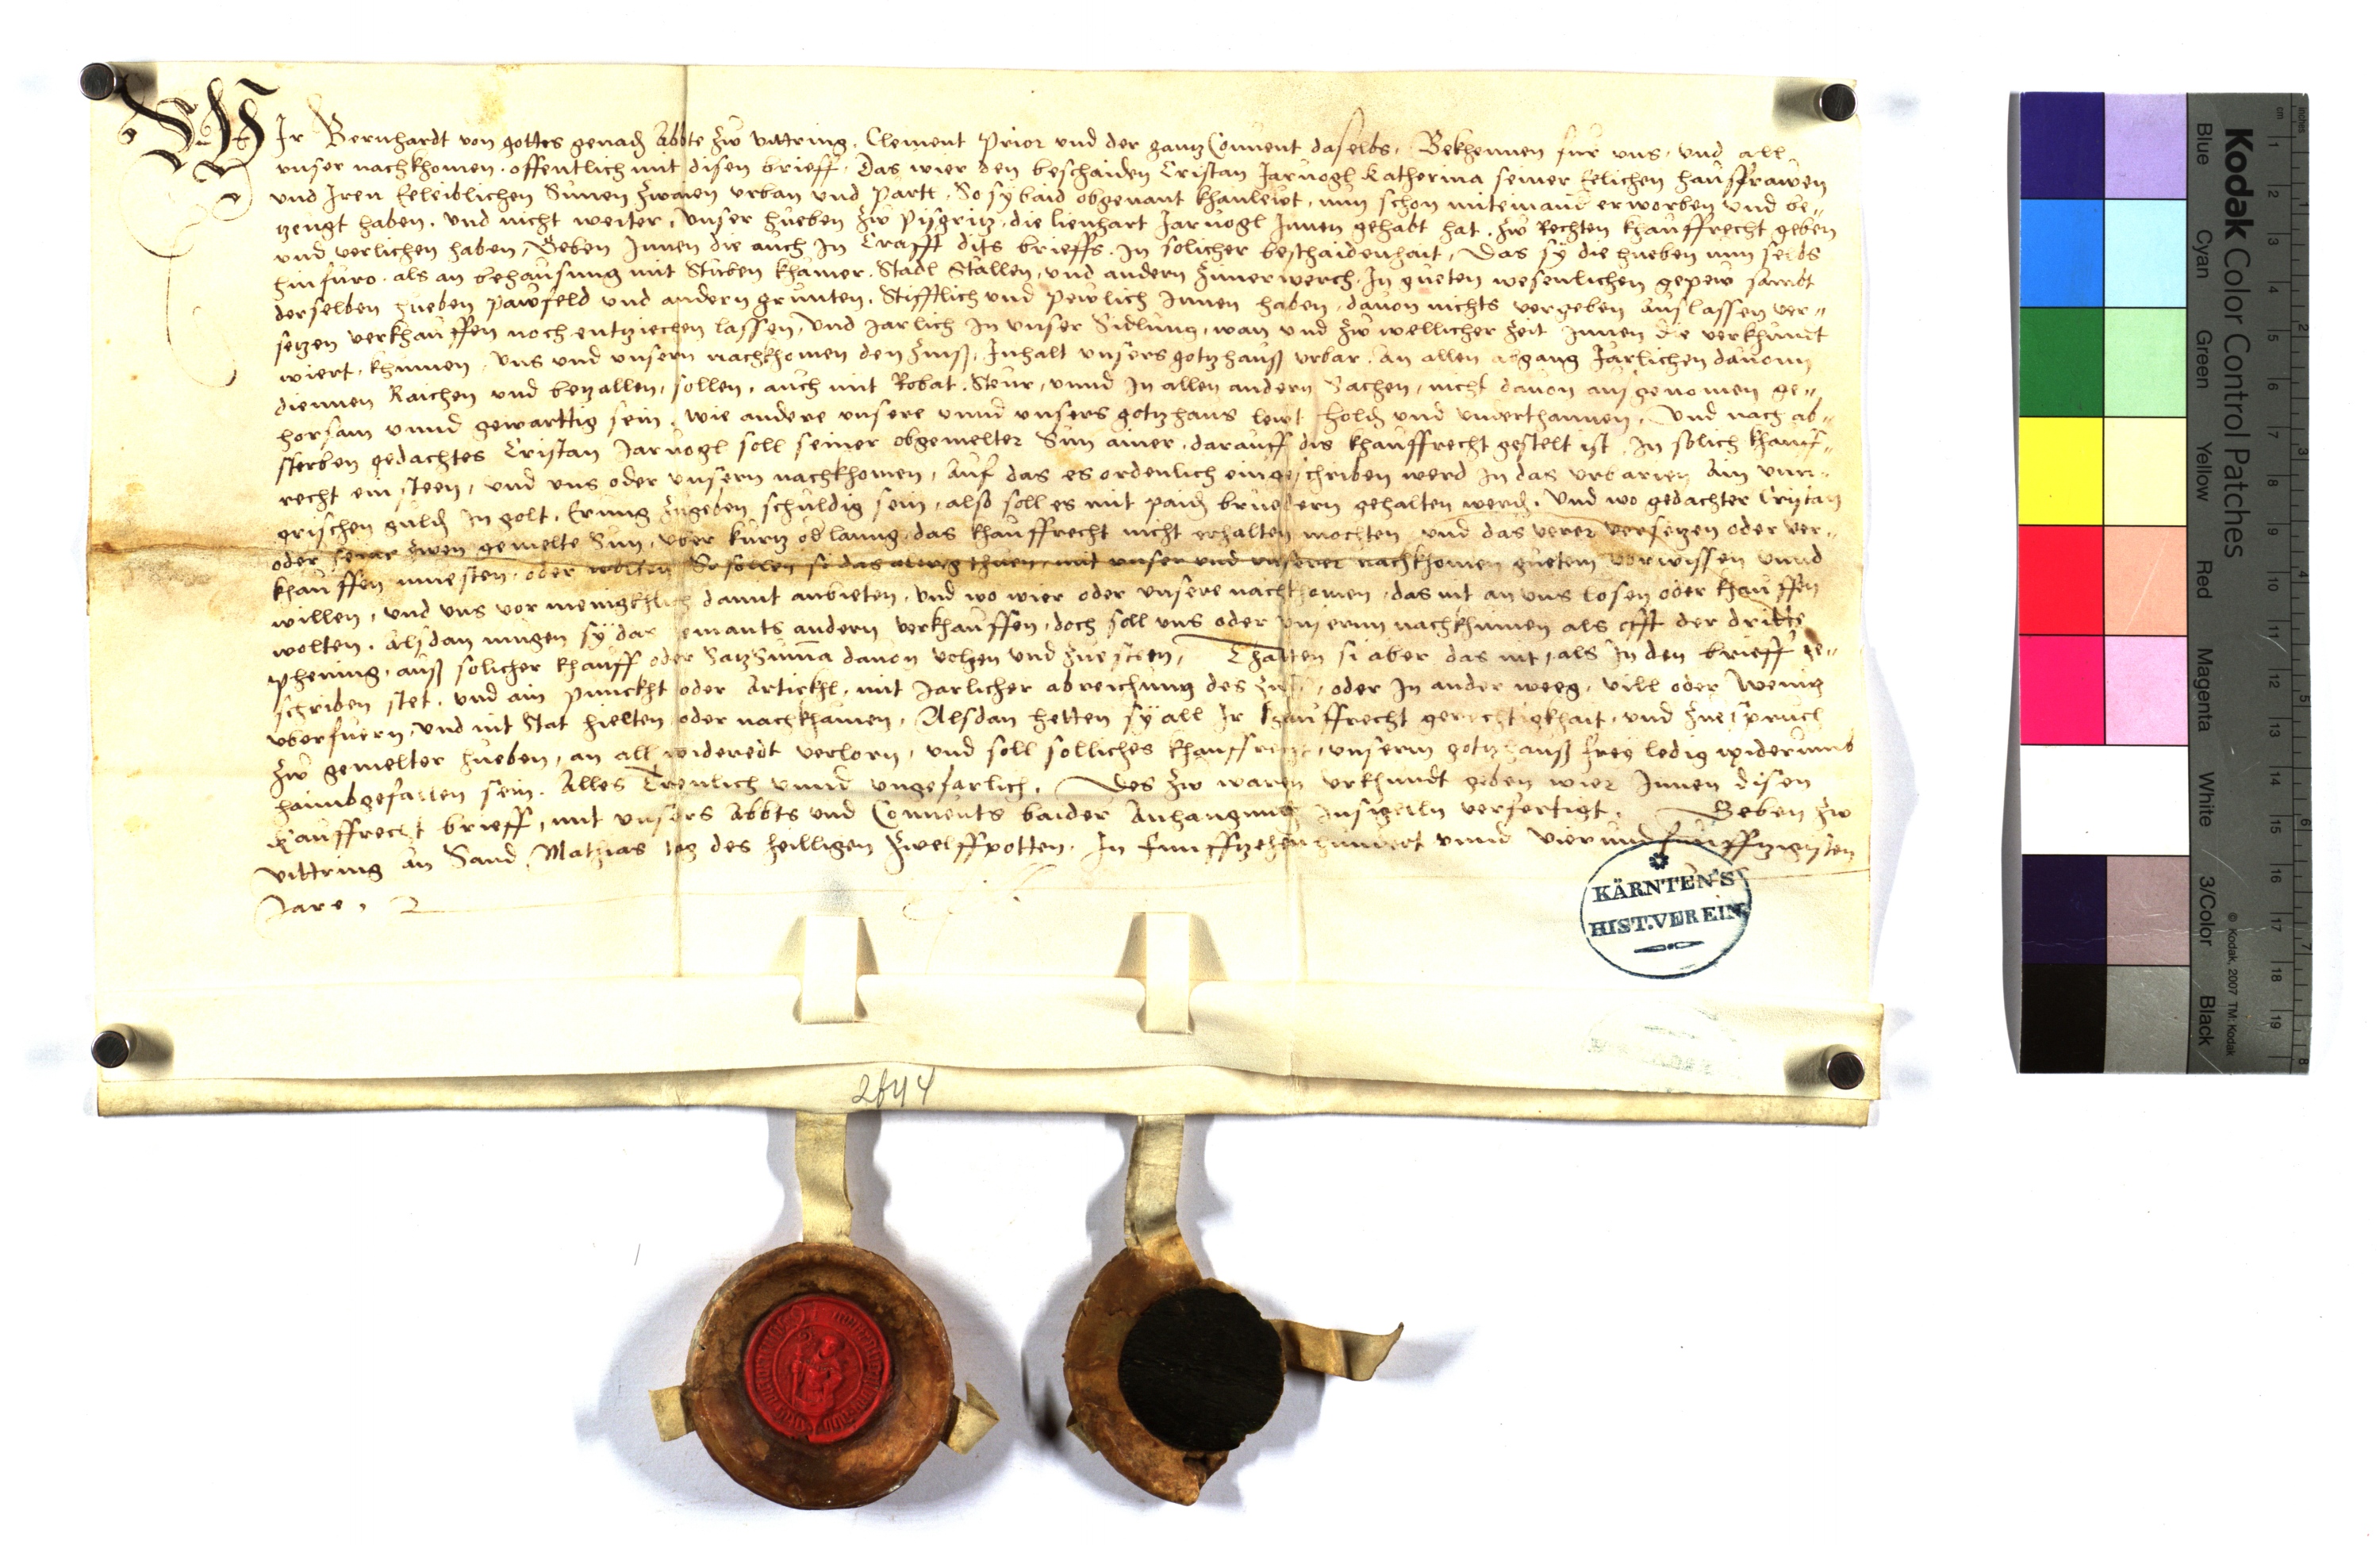 WIr Bernhardt von gottes genadn Abbte zw vittring, Clement Prior und der gantz Convent daselbs, Bekhennen für uns, und all
unser nachkhomen, offentlich mit disen brieff, Das wier den beschaiden Cristan Jarvogl Katherina seiner Eelichen hausfrawen
und Iren Eeleiblichen Sünen zwaien Urban und Partt, So sy baid obgenant khanlewt, nun schon miteinand erworben und be-
tzeugt haben, und nicht weiter, Unser hueben zw Pisgritz, die lienhart Jarvogl Innen gehabt hat, zw Rechten khauffrecht geben
und verlichen haben, Geben Innen die auch In Crafft dits brieffs, In solicher beschaidenhait, Das sy die hueben nun selbs
hinfüro, als an behausung mit Stuben khamer, Stadl Ställen, und andern zimerwerch, In gueten wesenlichen gepew sambt
derselben hueben pawfeld und andern grunten, Stifftlich und pewlich Innen haben, davon nichts vergeben auslassen ver-
setzen verkhauffen noch entziechen lassen, Und Jarlich In unser Sidlung, wan und zw wellicher zeit Innen die verkhundt
wiert, khumen, Uns und unsern nachkhomen den zinss, Inhalt unsers gotzhauss urbar, An allen abgang Järlichen davonn
diennen Raichen und betzallen, sollen, auch mit Robat, Steur, unnd In allen andern Sachen, nicht davon ausgenomen ge-
horsam unnd gewarttig sein, wie andere unsere unnd unsers gotzhaus lewt holdn und underthannen, Und nach ab-
sterben gedachtes Cristan Jarvogl soll seiner obgemelter Sün ainer, darauff dis khauffrecht gestelt ist, In solich khauf-
recht ein steen, und uns oder unsern nachkhomen, Auf das es ordenlich eingeschriben werd In das urbarien Ain unn-
grischen guldn In golt, Erung zugeben schuldig sein, also soll es mit paidn bruedern gehalten werdn, Und wo gedachter Cristan
oder seiner zwen gemelte Sün, uber kurtz od laung, das khauffrecht nicht erhalten mochten, und das verer versetzen oder ver-
khauffen muesten, oder wolten So sollen si das alweg thuen, mit unser und unserer nachkhomen guetem vorwissen unnd
willen, und uns vor menigkhlich damit anbieten, und wo wier oder unsere nachkhomen, das nit an uns losen oder khauffen
wolten, Alsdan mügen sy das Jemants andern verkhauffen, doch soll uns oder unsernn nachkhumen als offt der dritte
phening, auss solicher khauff oder Satz Summa davon volgen und zuesteen, Thätten si aber das nit, als In den brieff ge-
schriben stet, und ain punckht oder Artickhl, mit Jarlicher abreichung des zinss, oder In ander weeg, vill oder wenig
uberfuern, und nit Stat hielten oder nachkhämen, Alsdan hetten sy all Ir khauffrecht gerechtigkhait, und zuespruch
zw gemelter hueben, an all widerredt verlorn, und soll solliches khauffrecht, unserm gotzhauss frey ledig widerumb
haimbgefallen sein, Alles Trewlich unnd ungefarlich, Des zw waren urkhundt geben wier Innen disen
khauffrecht brieff, mit unsers Abbts und Convents baider Anhangund Insigelln verfertigt, Geben zw
vittring an Sand Mathias tag des heilligen zwelffpotten, In funfftzehenhundert unnd vierundfunfftzigisten
Jare,
KÄRNTEN'S
HIST.VEREIN
2644
Kodak Color Control Patches
Blue Cyan Green Yellow Red Magenta White 3/Color Black
© Kodak, 2007 TM: Kodak
cm 1 2 3 4 5 6 7 8 9 10 11 12 13 14 15 16 17 18 19
inches 1 2 3 4 5 6 7 8